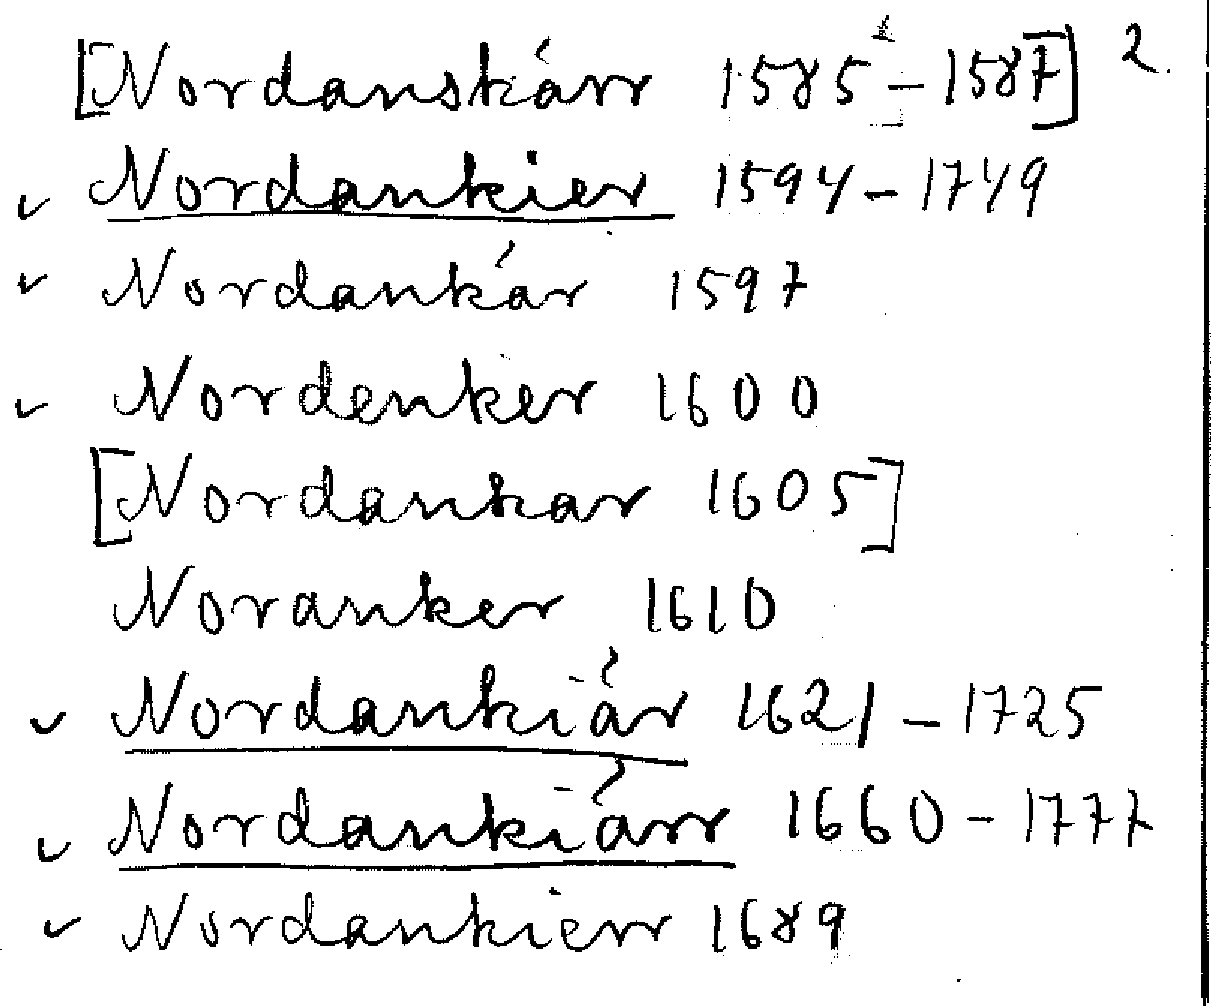 [Nordanskärr 1585-1587] 2.
✓ Nordankier 1594-1749
✓ Nordankär 1597
✓ Nordenker 1600
[Nordankar 1605]
Noranker 1610
✓ Nordankiär 1621-1725
✓ Nordankiärr 1660-1777
✓ Nordankierr 1689